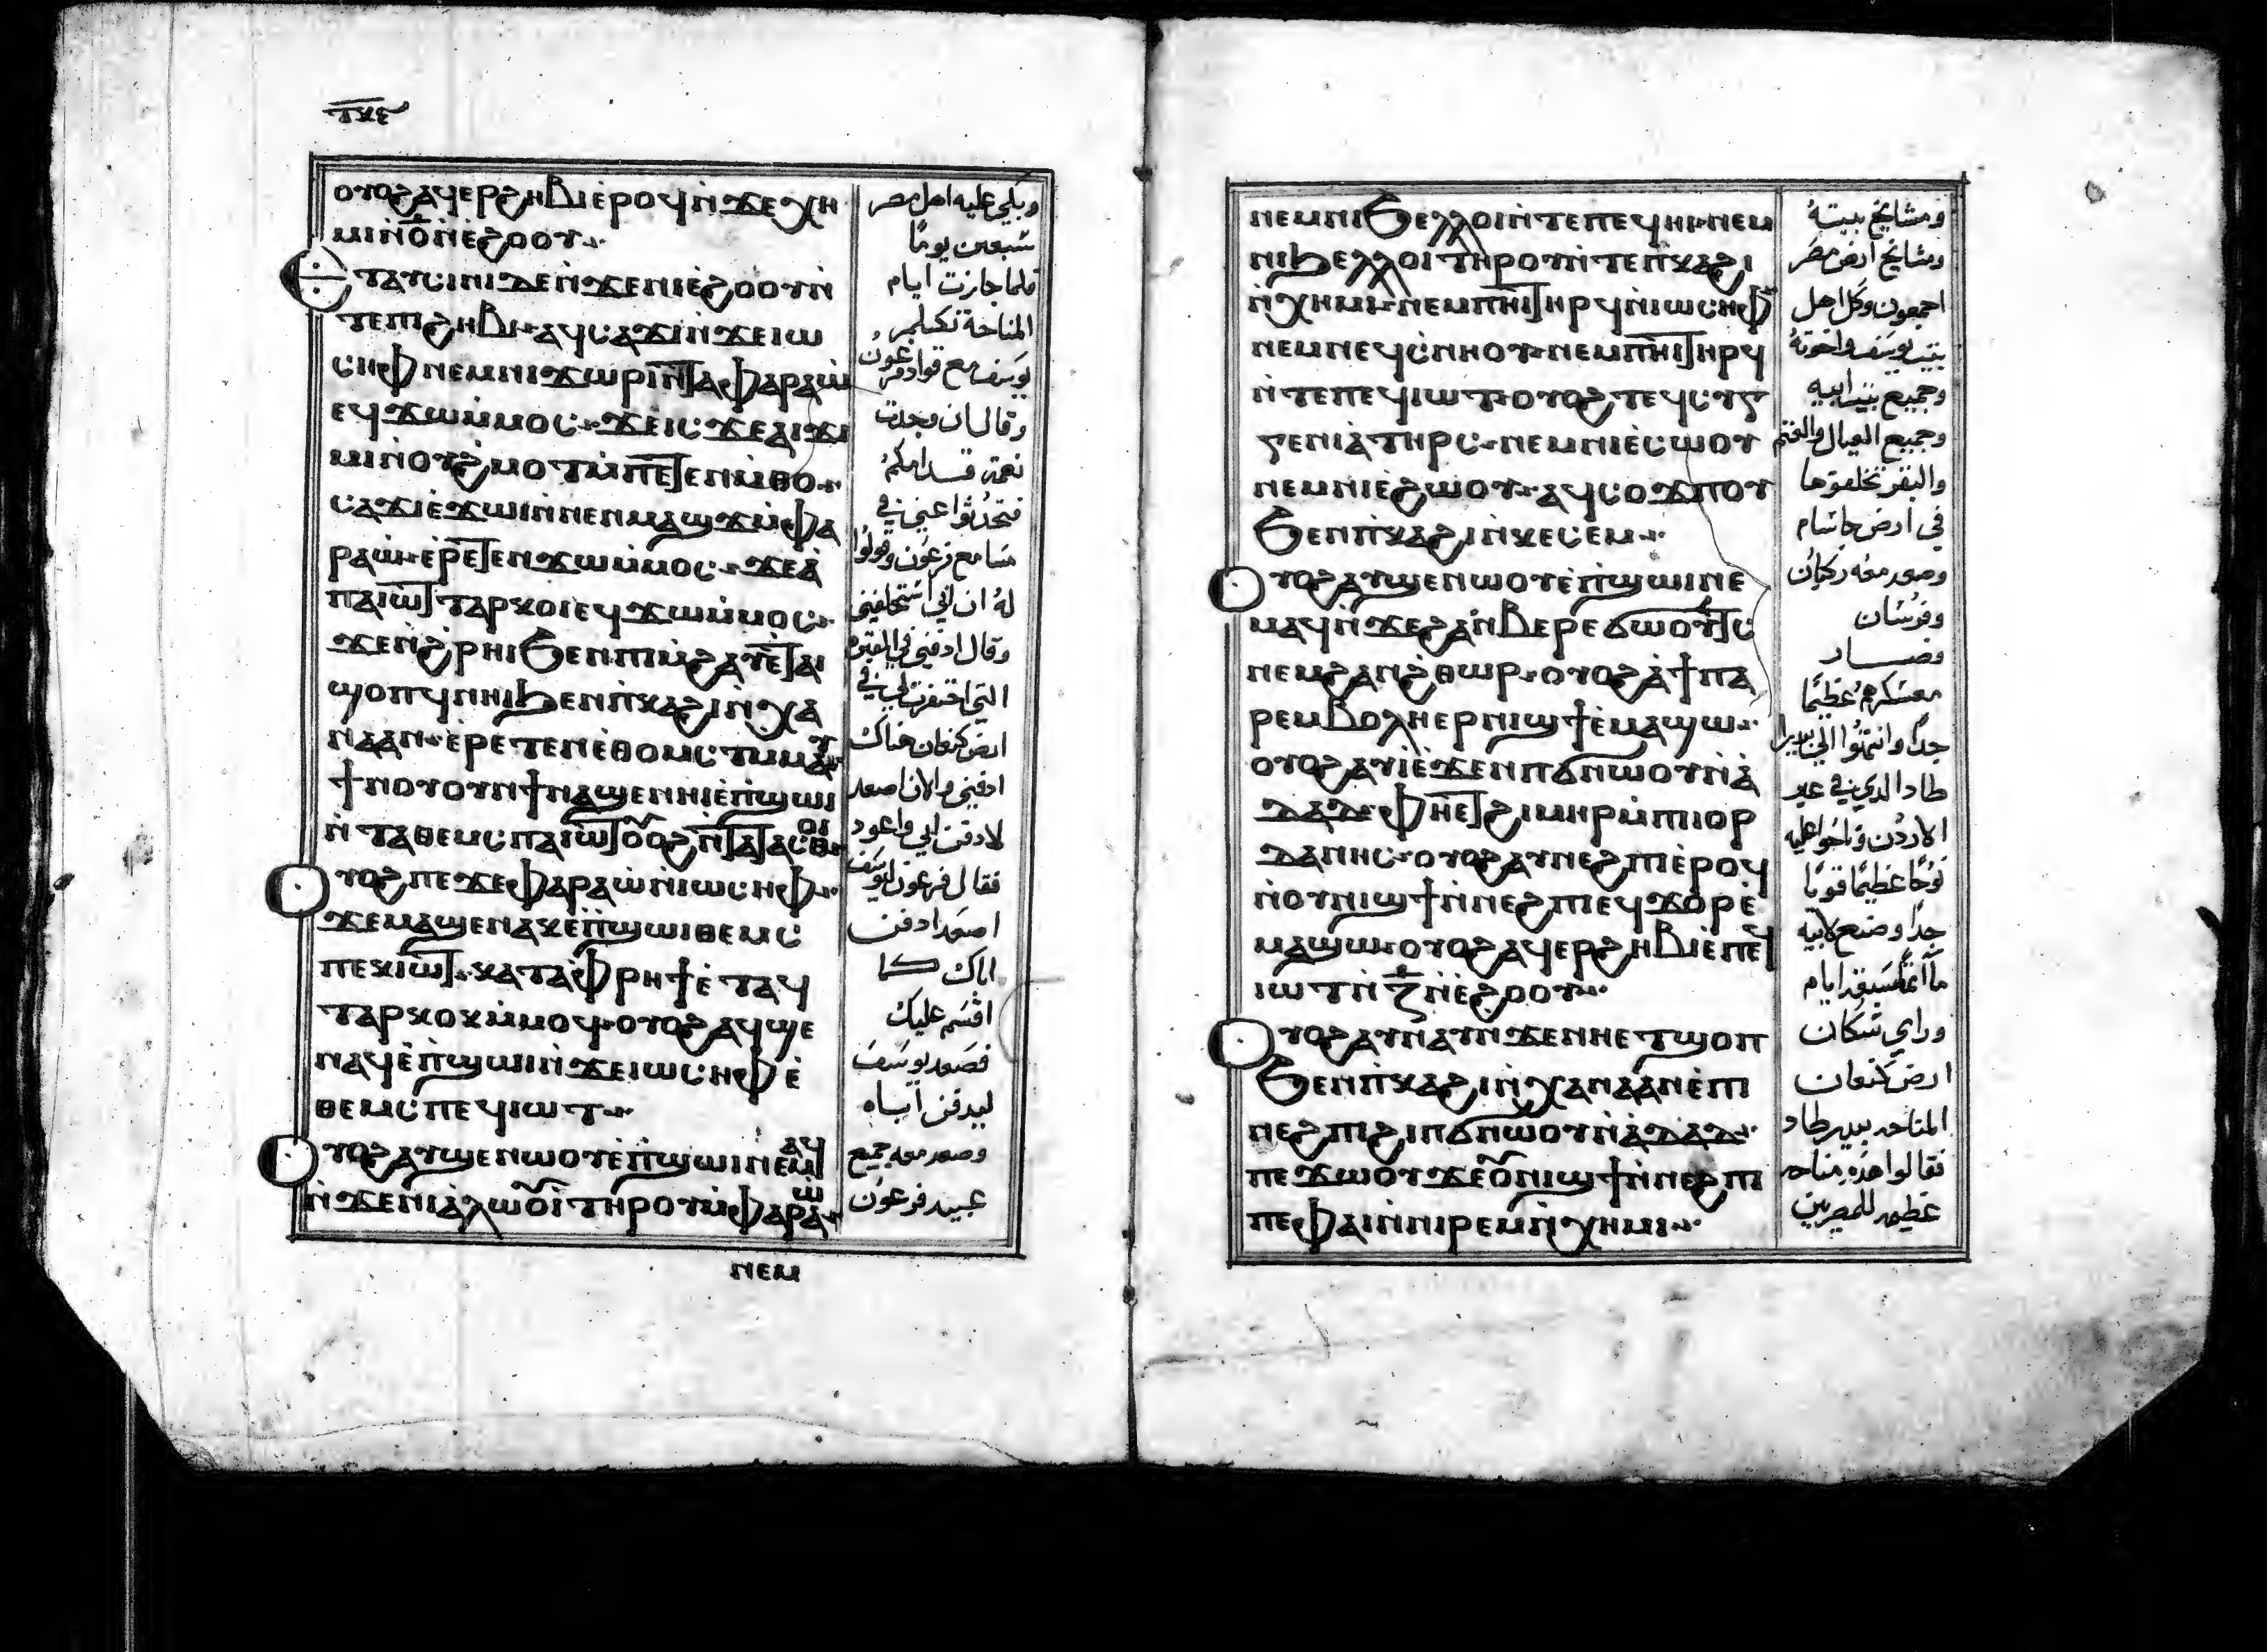 ⲧⲝⲋ
ⲟⲩⲟϩ ⲁϥⲉⲣϩⲏⲃⲓ ⲉ̀ⲣⲟϥ ⲛ̀ϫⲉ ⲭⲏ
ⲙⲓ ⲛ̀ⲟ̅ ⲛ̀ⲉ̀ϩⲟⲟⲩ
ⲉⲧⲁⲩⲥⲓⲛⲓ ⲇⲉ ⲛ̀ϫⲉ ⲛⲓⲉ̀ϩⲟⲟⲩ ⲛ̀
ⲧⲉ ⲡⲓϩⲏⲃⲓ ⲁϥⲥⲁϫⲓ ⲛ̀ϫⲉ ⲓⲱ
ⲥⲏⲫ ⲛⲉⲙ ⲛⲓϫⲱⲣⲓ ⲛ̀ⲧⲁ ⲫⲁⲣⲁⲱ̀
ⲉϥϫⲱ ⲙ̀ⲙⲟⲥ ϫⲉ ⲓⲥϫⲉ ⲁⲓϫⲓ
ⲙⲓ ⲛ̀ⲟⲩϩ̀ⲙⲟⲧ ⲙ̀ⲡⲉⲧⲉⲛⲙ̀ⲑⲟ
ⲥⲁϫⲓ ⲉ̀ϫⲱⲓ ⲛ̀ⲛⲉⲛⲙⲁϣϫ ⲙ̀ⲫⲁ
ⲣⲁⲱ̀ ⲉ̀ⲣⲉⲧⲉⲛϫⲱ ⲙ̀ⲙⲟⲥ ϫⲉ ⲁ̀
ⲡⲁⲓⲱⲧ ⲧⲁⲣⲕⲟⲓ ⲉϥϫⲱ ⲙ̀ⲙⲟⲥ
ϫⲉ ⲛ̀ϩ̀ⲣⲏⲓ ϧⲉⲛ ⲡⲓⲙ̀ϩⲁⲩ ⲉ̀ⲧⲁⲓ
ϣⲟⲡϥ ⲛⲏⲓ ϧⲉⲛ ⲡ̀ⲕⲁϩⲓ ⲛ̀ⲭⲁ
ⲛⲁⲁⲛ ⲉ̀ⲣⲉⲧⲉⲛⲉ̀ⲑⲟⲙⲥⲧ ⲙ̀ⲙⲁⲩ
ϯⲛⲟⲩ ⲟⲩⲛ ϯⲛⲁϣⲉⲛⲏⲓ ⲉ̀ⲡ̀ϣⲱⲓ
ⲛ̀ⲧⲁⲑⲉⲙⲥ ⲡⲁⲓⲱⲧ ⲟⲩⲟϩ ⲛ̀ⲧⲁⲧⲁⲥⲑⲟⲓ
ⲟⲩⲟϩ ⲡⲉϫⲉ ⲫⲁⲣⲁⲱ̀ ⲛ̀ⲓⲱⲥⲏⲫ
ϫⲉ ⲙⲁϣⲉⲛⲁⲕ ⲉ̀ⲡ̀ϣⲱⲓ ⲑⲉⲙⲥ
ⲡⲉⲕⲓⲱⲧ ⲕⲁⲧⲁ ⲫ̀ⲣⲏϯ ⲉ̀ⲧⲁϥ
ⲧⲁⲣⲕⲟⲕ ⲙ̀ⲙⲟϥ ⲟⲩⲟϩ ⲁϥϣⲉ
ⲛⲁϥ ⲉ̀ⲡ̀ϣⲱⲓ ⲛ̀ϫⲉ ⲓⲱⲥⲏⲫ ⲉ̀
ⲑⲉⲙⲥ ⲡⲉϥⲓⲱⲧ
ⲟⲩⲟϩ ⲁⲩϣⲉⲛⲱⲟⲩ ⲉ̀ⲡ̀ϣⲱⲓ ⲛⲉⲙⲁϥ
ⲛ̀ϫⲉ ⲛⲓⲁ̀ⲗⲱⲟⲩⲓ̀ ⲧⲏⲣⲟⲩ ⲙ̀ⲫⲁⲣⲁⲱ̀
ⲛⲉⲙ
وبكي عليه اهل مصر
سبعين يوما
فلما جازت ايام
المناحة تكلم
يوسف مع قواد فرعون
وقال ان وجدت
نعمة قدامكم
فتحدثوا عني في
مسامع فرعون وقولوا
له ان ابي استحلفني
وقال ادفني في المقبرة
التي احتفرت لي في
ارض كنعان هناك
ادفني والان اصعد
لادفن ابي واعود
فقال فرعون ليوسف
اصعد ادفن
اباك كما
اقسم عليك
فصعد يوسف
ليدفن اباه
وصعد معه جميع
عبيد فرعون
ⲛⲉⲙ ⲛⲓϧⲉⲗⲗⲟⲓ ⲛ̀ⲧⲉ ⲡⲉϥⲏⲓ ⲛⲉⲙ
ⲛⲓϧⲉⲗⲗⲟⲓ ⲧⲏⲣⲟⲩ ⲛ̀ⲧⲉ ⲡ̀ⲕⲁϩⲓ
ⲛ̀ⲭⲏⲙⲓ ⲛⲉⲙ ⲡⲏⲓ ⲧⲏⲣϥ ⲛ̀ⲓⲱⲥⲏⲫ
ⲛⲉⲙ ⲛⲉϥⲥ̀ⲛⲏⲟⲩ ⲛⲉⲙ ⲡⲏⲓ ⲧⲏⲣϥ
ⲛ̀ⲧⲉ ⲡⲉϥⲓⲱⲧ ⲟⲩⲟϩ ⲧⲉϥⲥⲩⲅ
ⲅⲉⲛⲓⲁ̀ ⲧⲏⲣⲥ ⲛⲉⲙ ⲛⲓⲉ̀ⲥⲱⲟⲩ
ⲛⲉⲙ ⲛⲓⲉ̀ϩⲱⲟⲩ ⲁϥⲥⲟϫⲡⲟⲩ
ϧⲉⲛ ⲡ̀ⲕⲁϩⲓ ⲛ̀ⲕⲉⲥⲉⲙ
ⲟⲩⲟϩ ⲁⲩϣⲉⲛⲱⲟⲩ ⲉ̀ⲡ̀ϣⲱⲓ ⲛⲉ
ⲙⲁϥ ⲛ̀ϫⲉ ϩⲁⲛⲃⲉⲣⲉϭⲱⲟⲩⲧⲥ
ⲛⲉⲙ ϩⲁⲛϩ̀ⲑⲱⲣ ⲟⲩⲟϩ ⲁ̀ ϯⲡⲁ
ⲣⲉⲙⲃⲟⲗⲏ ⲉⲣⲛⲓϣϯ ⲉ̀ⲙⲁϣⲱ
ⲟⲩⲟϩ ⲁⲩⲓ̀ ⲉ̀ϫⲉⲛ ⲡϭⲛⲱⲟⲩ ⲛ̀ⲁ̀
ⲇⲁⲇ ⲫⲏ ⲉⲧϩⲓⲙⲏⲣ ⲙ̀ⲡⲓⲟⲣ
ⲇⲁⲛⲏⲥ ⲟⲩⲟϩ ⲁⲩⲛⲉϩⲡⲓ ⲉ̀ⲣⲟϥ
ⲛ̀ⲟⲩⲛⲓϣϯ ⲛ̀ⲛⲉϩⲡⲓ ⲉϥϫⲟⲣ ⲉ̀
ⲙⲁϣⲱ ⲟⲩⲟϩ ⲁϥⲉⲣϩⲏⲃⲓ ⲉ̀ⲡⲉϥ
ⲓⲱⲧ ⲛ̀ⲍ̅ ⲛ̀ⲉ̀ϩⲟⲟⲩ
ⲟⲩⲟϩ ⲁⲩⲛⲁⲩ ⲛ̀ϫⲉ ⲛⲏ ⲉⲧϣⲟⲡ
ϧⲉⲛ ⲡ̀ⲕⲁϩⲓ ⲛ̀ⲭⲁⲛⲁⲁⲛ ⲉ̀ⲡⲓ
ⲛⲉϩⲡⲓ ϩⲓ ⲡϭⲛⲱⲟⲩ ⲛ̀ⲁ̀ⲇⲁⲇ
ⲡⲉϫⲱⲟⲩ ϫⲉ ⲟⲩⲛⲓϣϯ ⲛ̀ⲛⲉϩⲡⲓ
ⲡⲉ ⲫⲁⲓ ⲛ̀ⲛⲓⲣⲉⲙⲛ̀ⲭⲏⲙⲓ
ومشايخ بيته
ومشايخ ارض مصر
اجمعون وكل اهل
بيت يوسف واخوته
وجميع بيت ابيه
وجميع العيال والغنم
والبقر تخلفوها
في ارض جاسام
وصعد معه ركبان
وفرسان
وصار
معسكرهم عظيما
جدا وانتهوا الي بيدر
طاد الدي في عبر
الاردن وناحوا عليه
نوحا عظيما قويا
جدا وصنع لابيه
ماتما سبعة ايام
وراي سكان
ارض كنعان
المناحه بيدر طاد
فقالوا هذه مناحه
عظيمه للمصريين